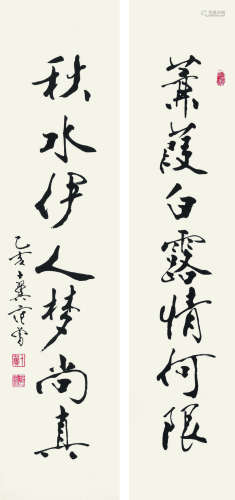 蒹葭白露情何限
秋水伊人梦尚真
乙亥十翼范曾